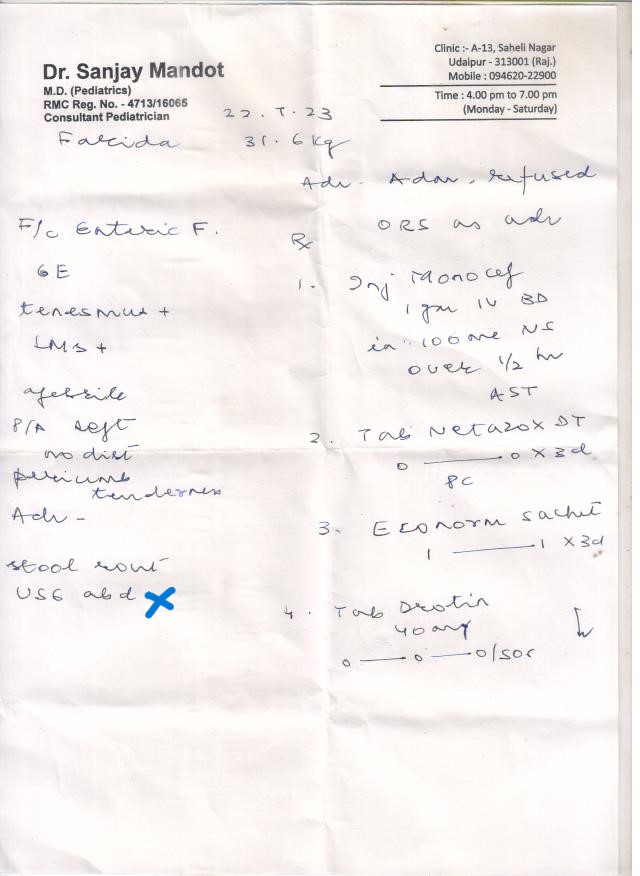 Dr. Sanjay Mandot
M.D. (Pediatrics)
RMC Reg. No. - 4713/16065
Consultant Pediatrician
Clinic :- A-13, Saheli Nagar
Udaipur - 313001 (Raj.)
Mobile : 094620-22900
Time : 4.00 pm to 7.00 pm
(Monday - Saturday)
22.7.23
Farida 31.6 kg
F/c Enteric F.
GE
tenesmus +
LMS +
afebrile
P/A soft
no dist
periumb
tenderness
Adv -
stool rout
USG abd
Adv - Adm. refused
ORS as adv
Rx
1. Inj Monocef
1 gm IV BD
in 100 ml NS
over 1/2 hr
AST
2. Tab Netazox DT
0 — 0 x 3d
PC
3. Econorm sachet
1 — 1 x 3d
4. Tab Drotin
40 mg
0 — 0 — 0/SOS